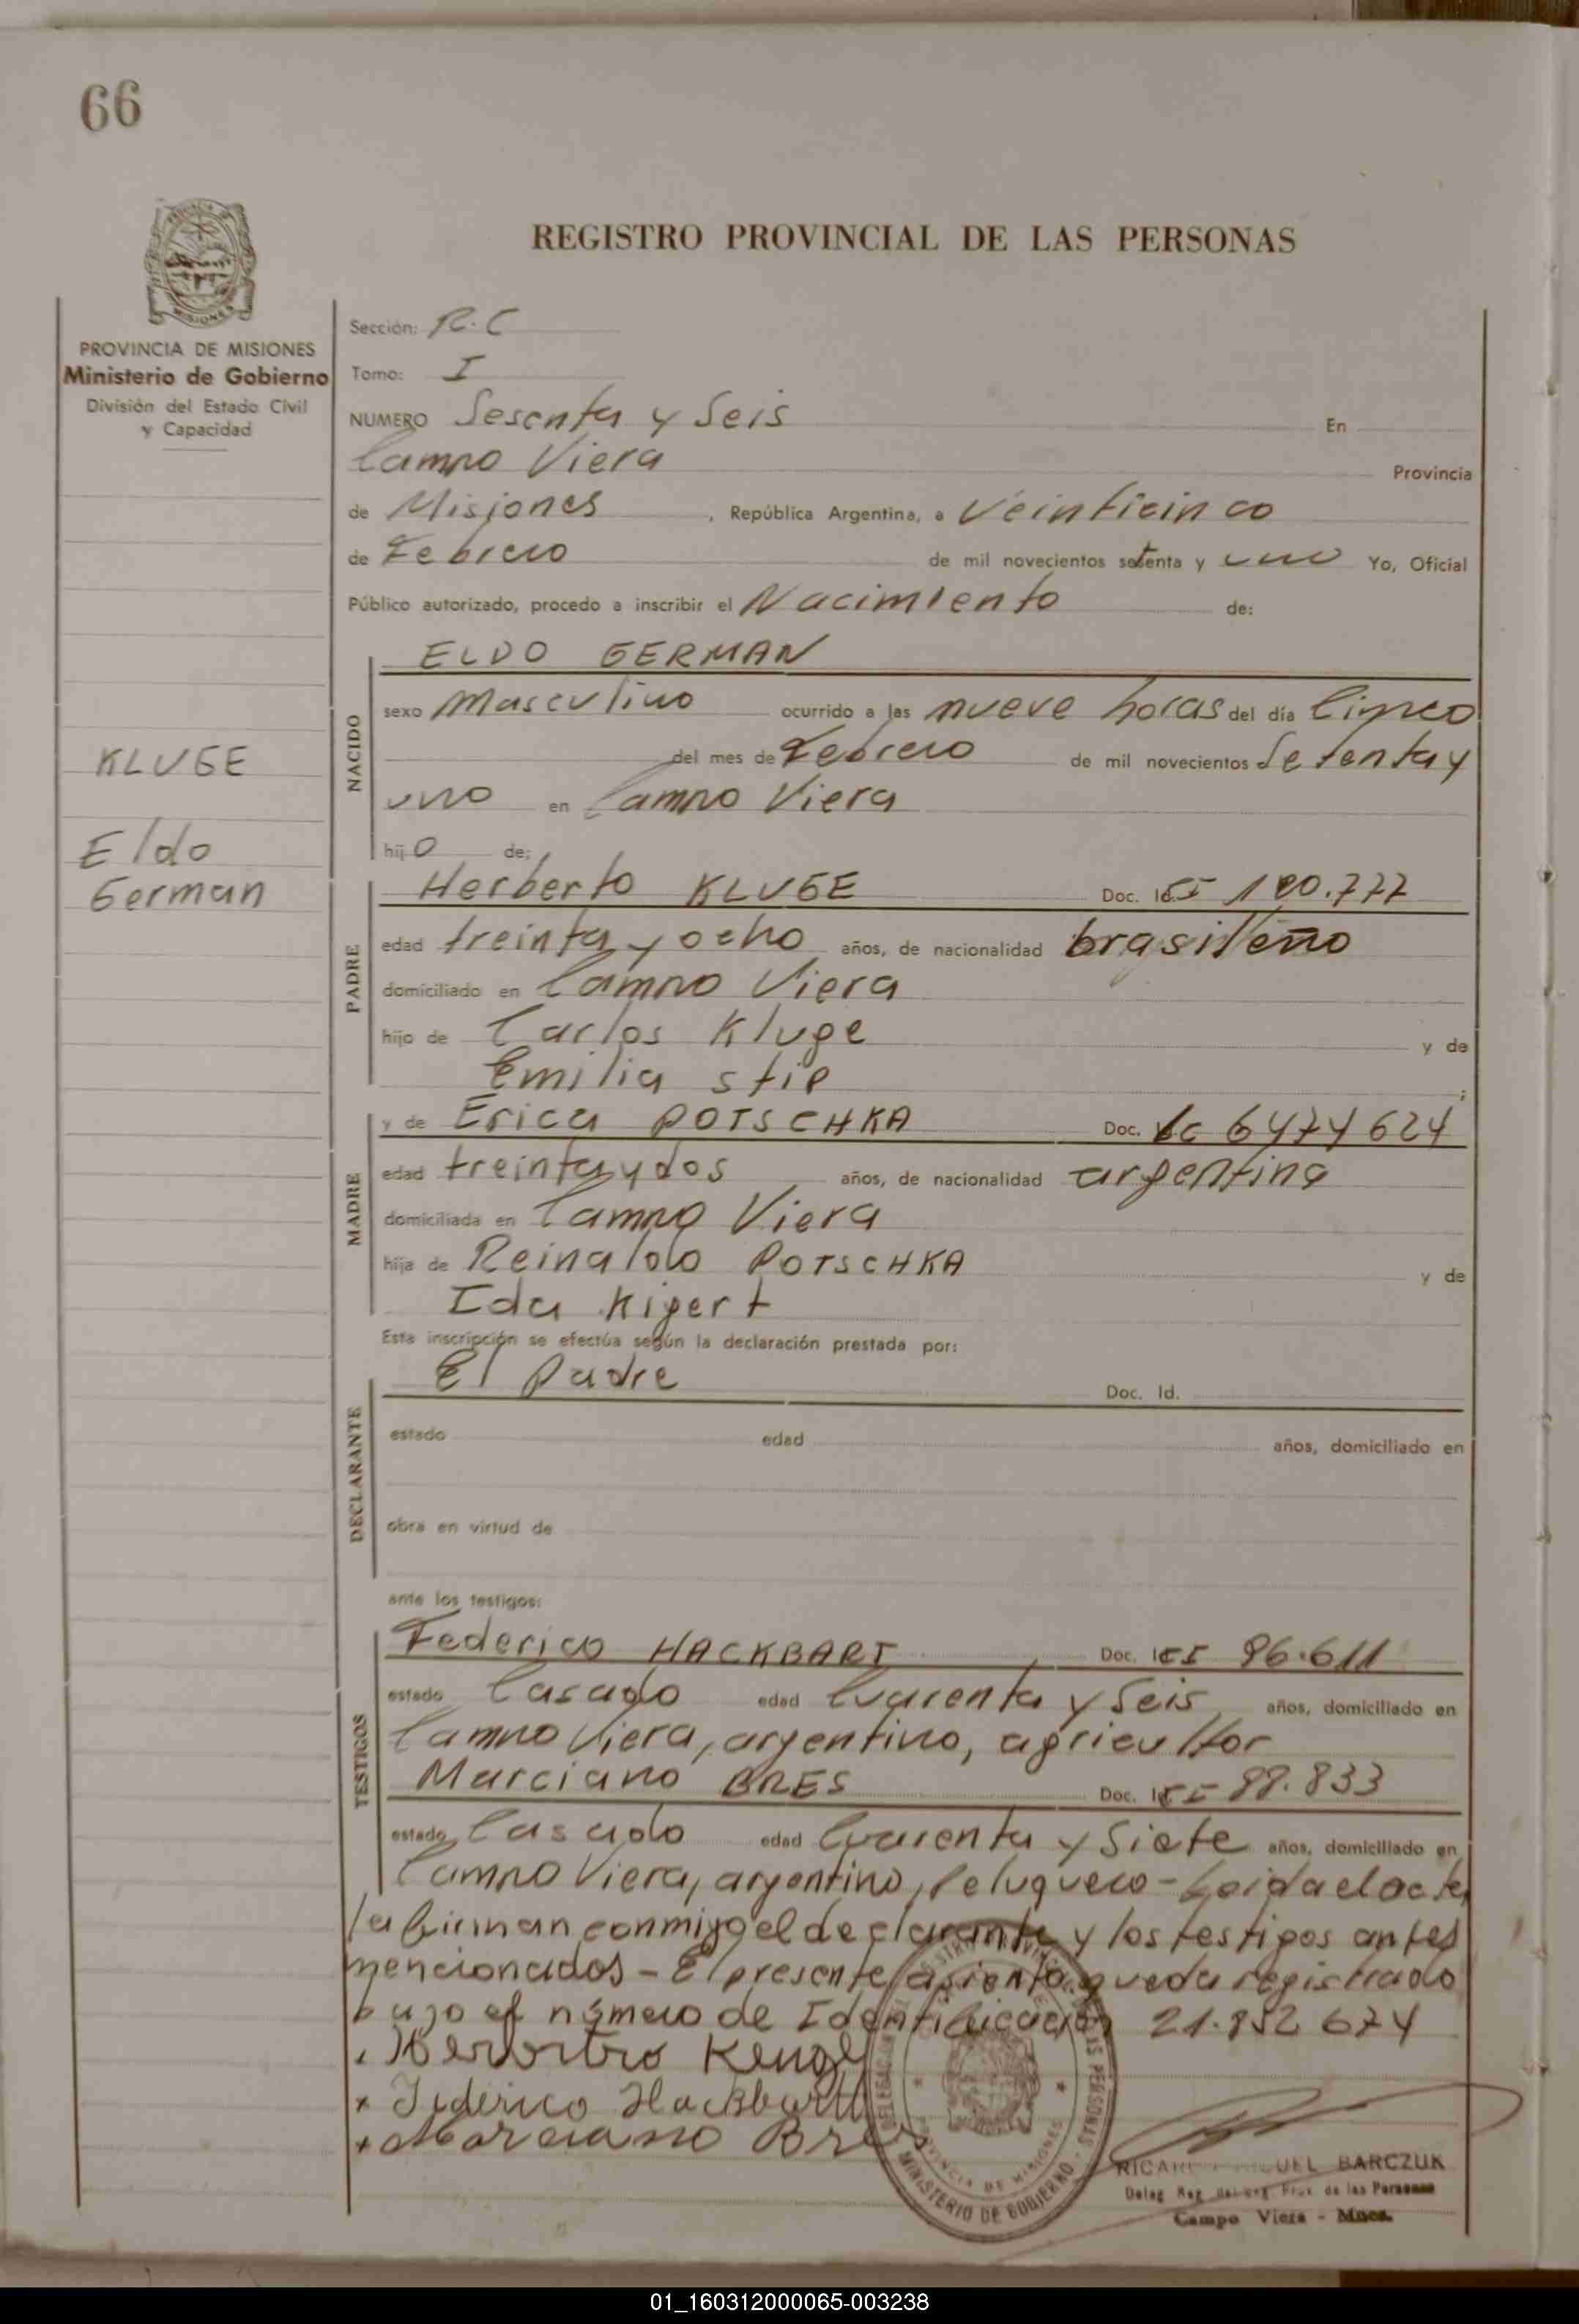 66
REGISTRO PROVINCIAL DE LAS PERSONAS
PROVINCIA DE MISIONES
Ministerio de Gobierno
División del Estado Civil
y Capacidad
KLUGE
Eldo
German
Sección: R.C
Tomo: I
NUMERO Sesenta y Seis En
Campo Viera Provincia
de Misiones, República Argentina, a Veinticinco
de Febrero de mil novecientos setenta y uno Yo, Oficial
Público autorizado, procedo a inscribir el Nacimiento de:
NACIDO
ELDO GERMAN
sexo Masculino ocurrido a las nueve horas del día Cinco
del mes de Febrero de mil novecientos Setenta y
uno en Campo Viera
hijo de:
PADRE
Herberto KLUGE Doc. Id. CI
edad treinta y ocho años, de nacionalidad brasileño
domiciliado en Campo Viera
hijo de Carlos Kluge y de
Emilia
MADRE
y de Erica POTSCHKA Doc. LC 6474624
edad treinta y dos años, de nacionalidad argentina
domiciliada en Campo Viera
hija de Reinaldo POTSCHKA y de
Ida Kigert
Esta inscripción se efectúa según la declaración prestada por:
DECLARANTE
El Padre Doc. Id.
estado edad años, domiciliado en
obra en virtud de
ante los testigos:
TESTIGOS
Federico HACKBART Doc. Id. CI 96.611
estado Casado edad Cuarenta y Seis años, domiciliado en
Campo Viera, argentino, agricultor
Marciano BRES Doc. Id. CI
estado Casado edad Cuarenta y Siete años, domiciliado en
Campo Viera, argentino, Peluquero - Leida el acta
la firman conmigo el declarante y los testigos antes
mencionados - El presente asiento queda registrado
bajo el número de Identificación 21.852 674
Federico Hackbartt
Marciano Bres
MINISTERIO DE GOBIERNO
PROVINCIA DE MISIONES
BARCZUK
de las Personas
Campo Viera - Mnes.
01_160312000065-003238